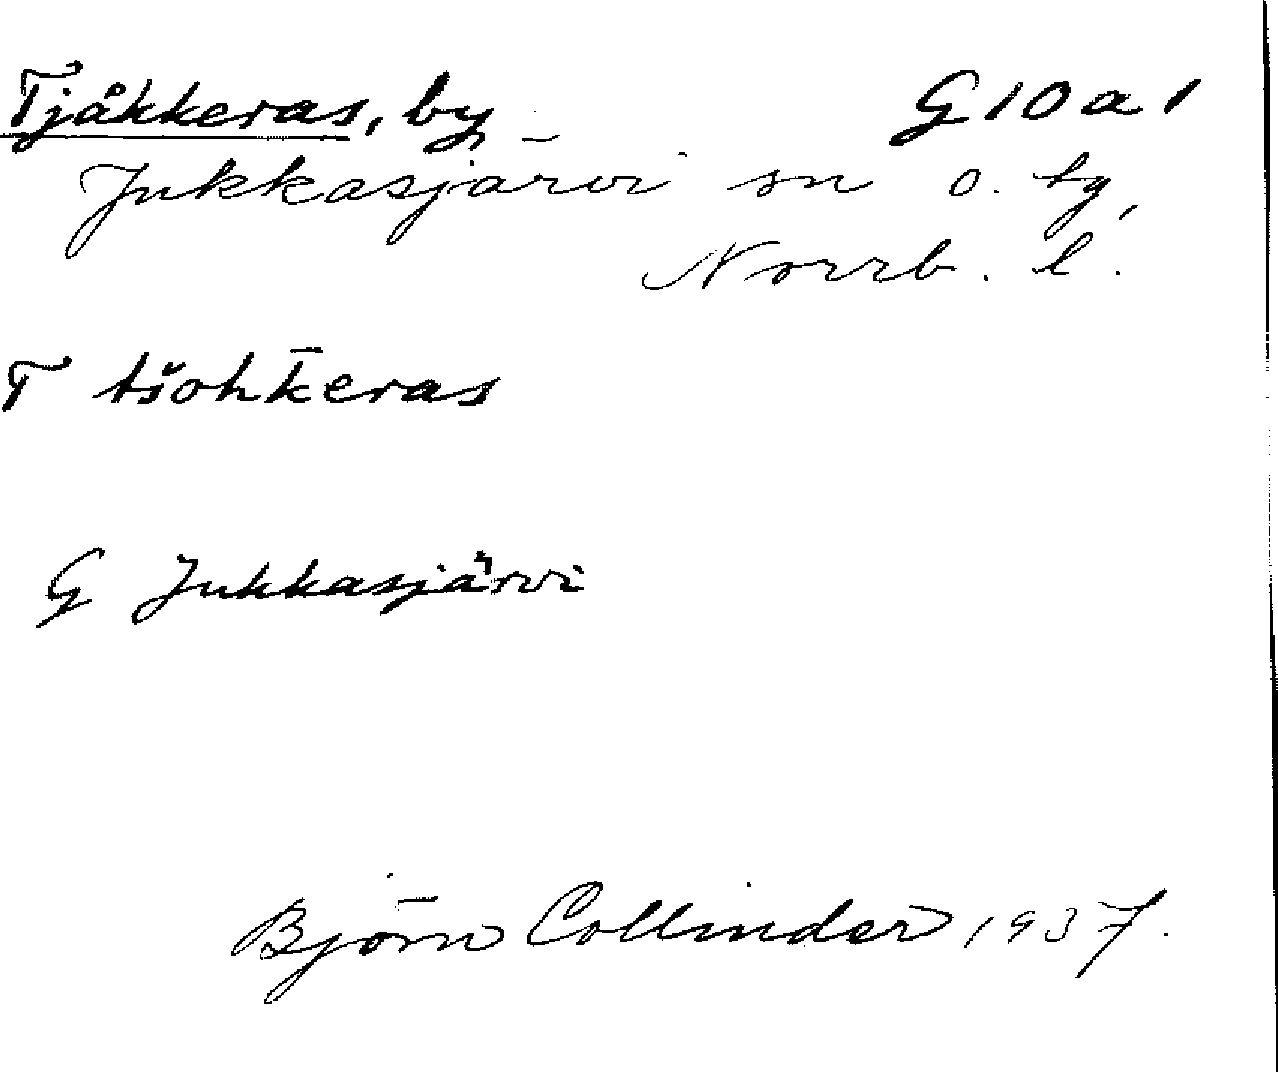 Tjåkkeras, by G10a1
Jukkasjärvi sn o. tg,
Norrb. l.
T tšohk̄eras
G Jukkasjärvi
Björn Collinder 1937.